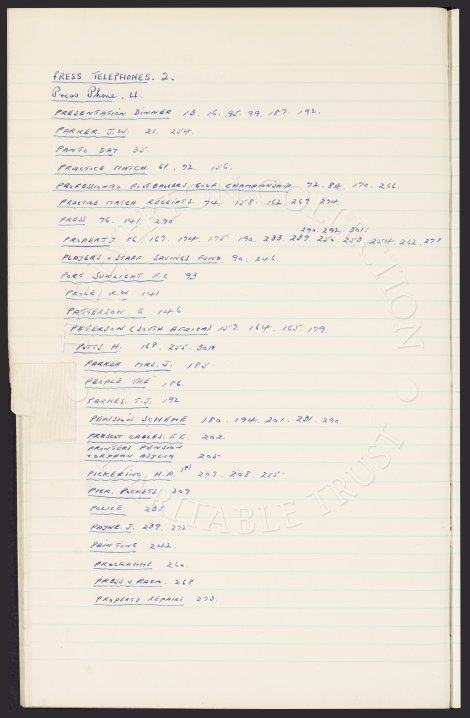 PRESS TELEPHONES. 2.
Press Phone. 4.
PRESENTATION DINNER 13. 16. 95. 99. 187. 192.
PARKER. J.W. 21. 254.
PANTO DAY 35.
PRACTICE MATCH. 61. 72. 156.
PROFESSIONAL FOOTBALLERS GOLF CHAMPIONSHIP 72. 84. 170. 266.
PRACTICE MATCH RECEIPTS. 74. 158. 162. 269. 274.
PRESS 76. 141. 270.
290. 292. 301.
PROPERTY 86. 167. 174. 175. 190. 238. 239. 250. 253. 254. 262. 278
PLAYERS & STAFF SAVINGS FUND 90. 246.
PORT SUNLIGHT F.C 93
PROLE. R.W 141
PATTERSON G 146
PETERSON (SOUTH AFRICA) 157. 164. 165. 179.
POTTS. H. 168. 255. 301
PARKER MRS. J. 185.
PEOPLE THE 186.
PARNES. T.J. 192
PENSION SCHEME 180. 194. 201. 231. 290
PRESCOT CABLES. F.C. 202.
PRINTERS PENSION
& ORPHAN ASYLUM 205
PICKERING. H.R. (P) 207. 208. 255.
PICK. POCKETS 209
POLICE 235
PAYNE. J. 239. 272
PAINTING 242.
PROGRAMME 260
PRESS & RADIO. 268
PROPERTY REPAIRS 273.
COLLECTION
CHARITABLE TRUST